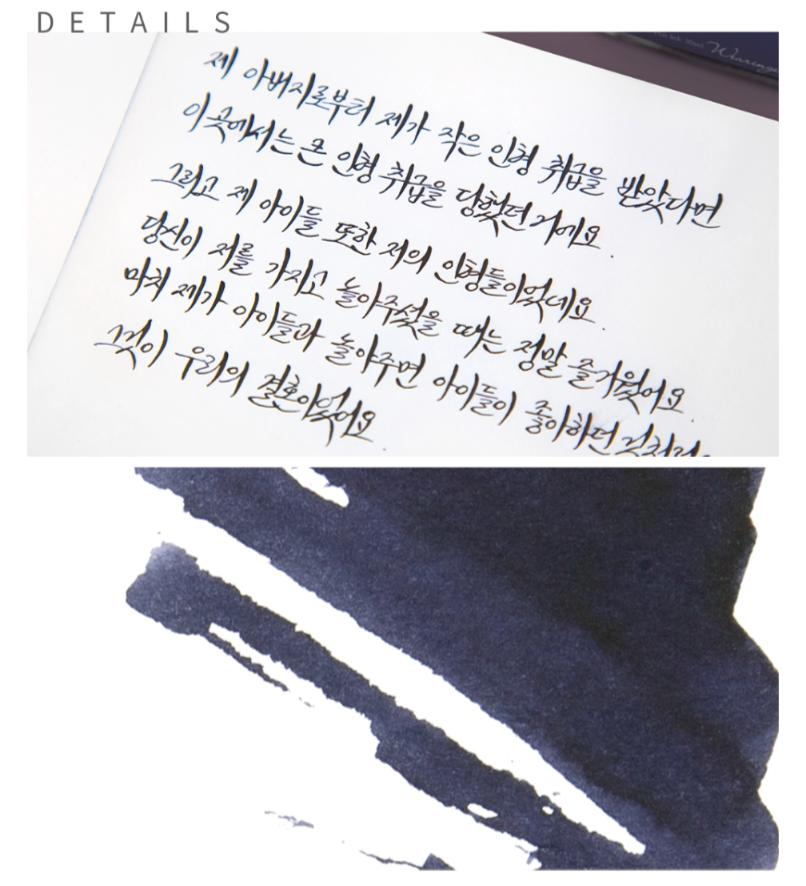 DETAILS
제 아버지로부터 제가 작은 인형 취급을 받았다면
이 곳에서는 큰 인형 취급을 당했던 거에요.
그리고 제 아이들 또한 저의 인형들이었네요.
당신이 저를 가지고 놀아주셨을 때는 정말 즐거웠어요.
마치 제가 아이들과 놀아주면 아이들이 좋아하던 것처럼
그것이 우리의 결혼이었어요.